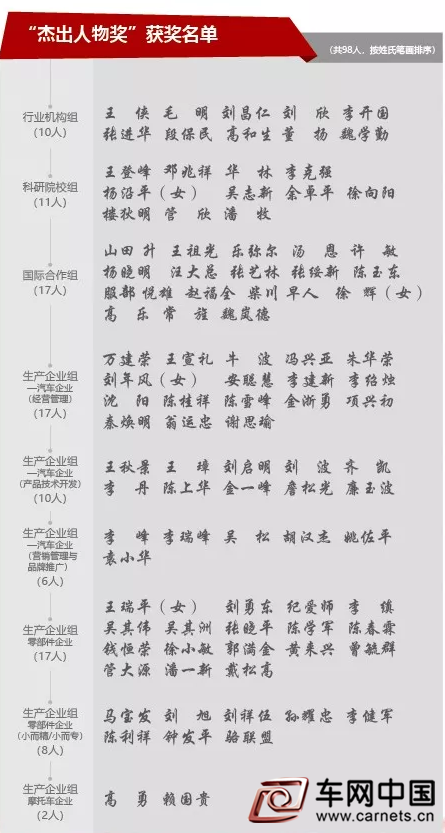 “杰出人物奖”获奖名单
（共98人，按姓氏笔画排序）
行业机构组
（10人）
王 侠 毛 明 刘昌仁 刘 欣 李开国
张进华 段保民 高和生 董 扬 魏学勤
科研院校组
（11人）
王登峰 邓兆祥 华 林 李克强
杨沿平（女） 吴志新 余卓平 徐向阳
楼狄明 管 欣 潘 牧
国际合作组
（17人）
山田 升 王祖光 乐弥尔 汤 恩 许 敏
杨晓明 汪大总 张艺林 张绥新 陈玉东
服部 悦雄 赵福全 柴川 早人 徐 辉（女）
高 乐 常 旌 魏岚德
生产企业组
—汽车企业
（经营管理）
（17人）
万建荣 王宣礼 牛 波 冯兴亚 朱华荣
刘年风（女） 安聪慧 李建新 李绍烛
沈 阳 陈桂祥 陈雪峰 金渐勇 项兴初
秦焕明 翁运忠 谢思瑜
生产企业组
—汽车企业
（产品技术开发）
（10人）
王秋景 王 璋 刘启明 刘 波 齐 凯
李 丹 陈上华 金一峰 詹松光 廉玉波
生产企业组
—汽车企业
（营销管理与
品牌推广）
（6人）
李 峰 李瑞峰 吴 松 胡汉杰 姚佐平
袁小华
生产企业组
零部件企业
（17人）
王瑞平（女） 刘勇东 纪爱师 李 缜
吴其伟 吴其洲 张晓平 陈学军 陈春霖
钱恒荣 徐小敏 郭满金 黄来兴 曾毓群
管大源 潘一新 戴松高
生产企业组
零部件企业
（小而精/小而专）
（8人）
马宝发 刘 旭 刘祥伍 孙耀忠 李健军
陈利祥 钟发平 骆联盟
生产企业组
摩托车企业
（2人）
高 勇 赖国贵
车网中国
www.carnets.cn